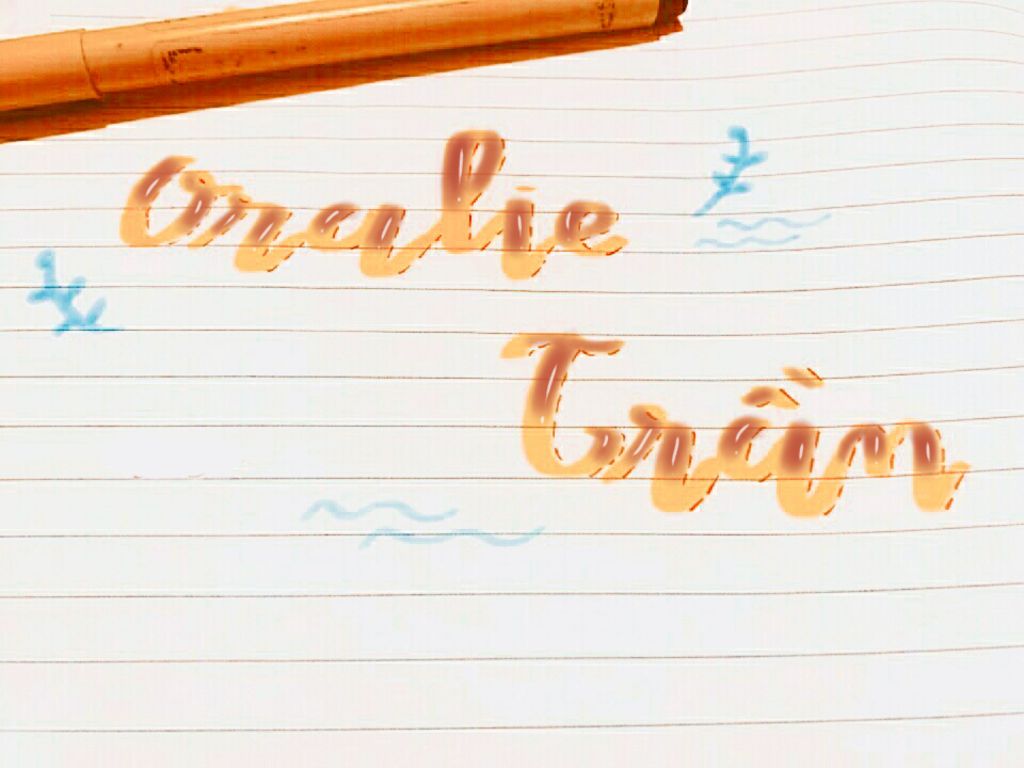 Oralie
Trần